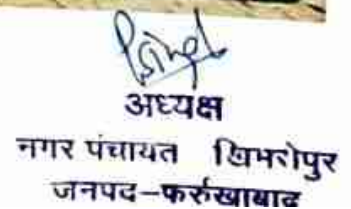 अध्यक्ष
नगर पंचायत खिमसेपुर
जनपद-फर्रुखाबाद